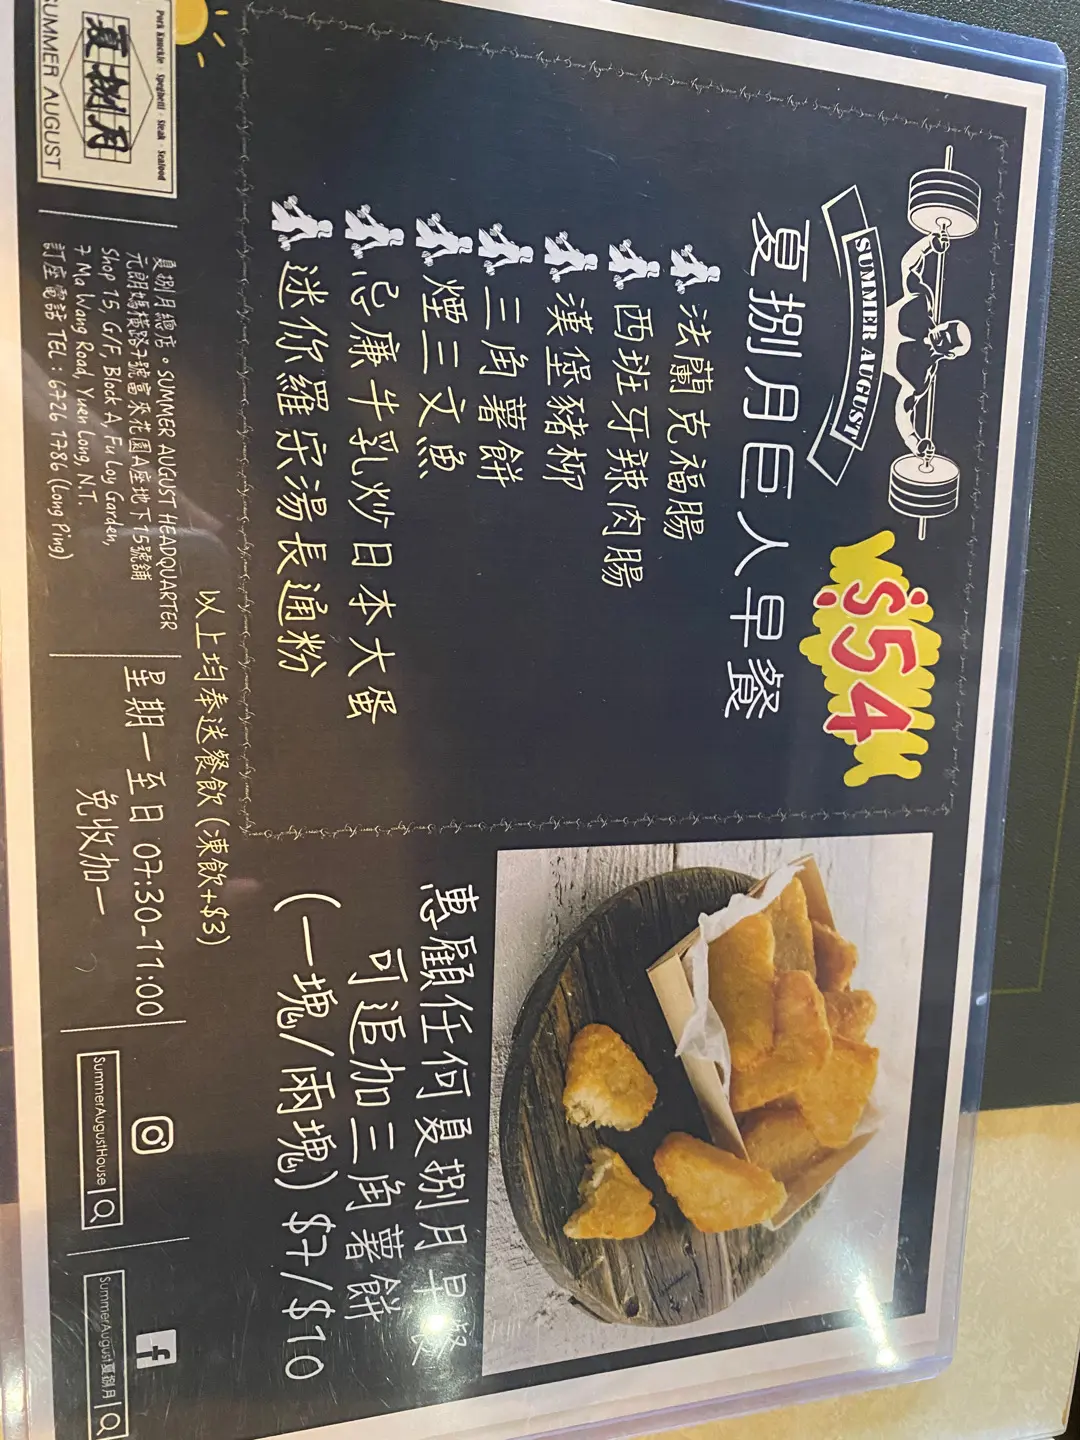 SUMMER AUGUST
$54
夏捌月巨人早餐
法蘭克福腸
西班牙辣肉腸
漢堡豬柳
三角薯餅
煙三文魚
忌廉牛乳炒日本大蛋
迷你羅宋湯長通粉
以上均奉送餐飲(凍飲+$3)
惠顧任何夏捌月早餐
可追加三角薯餅
(一塊/兩塊) $7/$10
Pork Knuckle · Spaghetti · Steak · Seafood
夏捌月
SUMMER AUGUST
夏捌月總店。SUMMER AUGUST HEADQUARTER
元朗媽橫路7號富來花園A座地下15號舖
Shop 15, G/F, Block A, Fu Loy Garden,
7 Ma Wang Road, Yuen Long, N.T.
訂座電話 TEL : 6726 1786 (Long Ping)
星期一至日 07:30-11:00
免收加一
SummerAugustHouse
SummerAugust夏捌月